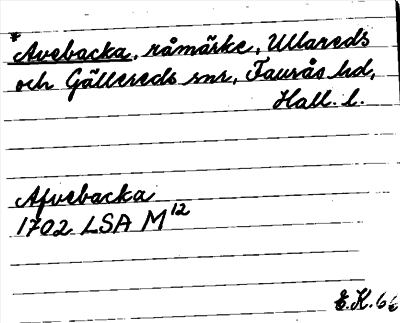 * Avebacka, råmärke, Ullareds
och Gällereds snr, Faurås hd,
Hall. l.
Afvebacka
1702 LSA M12
E.K. 66